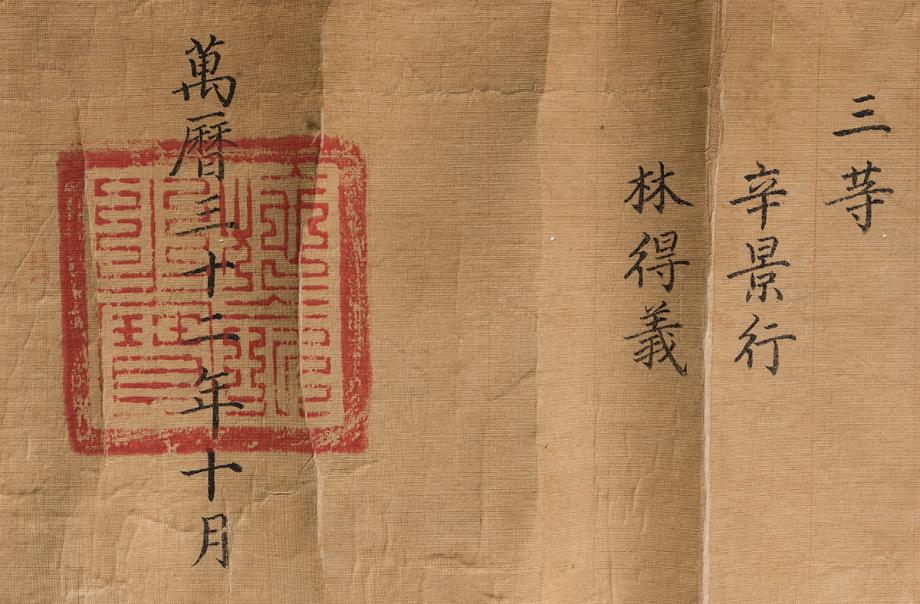 三等
辛景行
林得義
萬曆三十二年十月